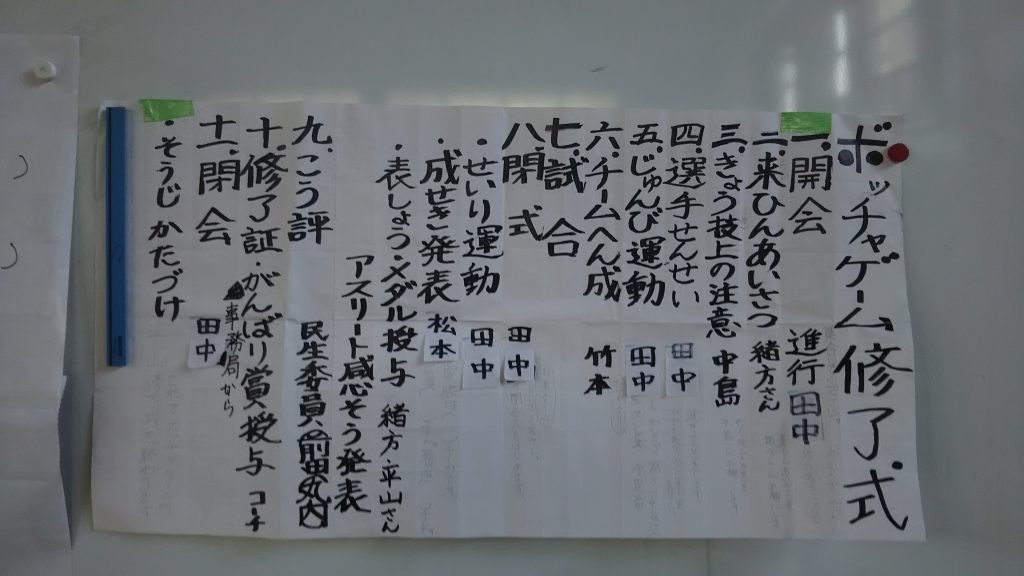 ボッチャゲーム修了式
一.開会 進行 田中
二.来ひんあいさつ 緒方さん
三.きょう技上の注意 中島
四.選手せんせい 田中
五.じゅんび運動 田中
六.チームへん成 竹本
七.試合
八.閉式 田中
・せいり運動 田中
・成せき発表 松本
・表しょう・メダル授与 緒方・平山さん
アスリート感そう発表
九.こう評 民生委員 前田 丸内
十.修了証・がんばり賞授与 コーチ
事務局から
十一.閉会 田中
・そうじかたづけ